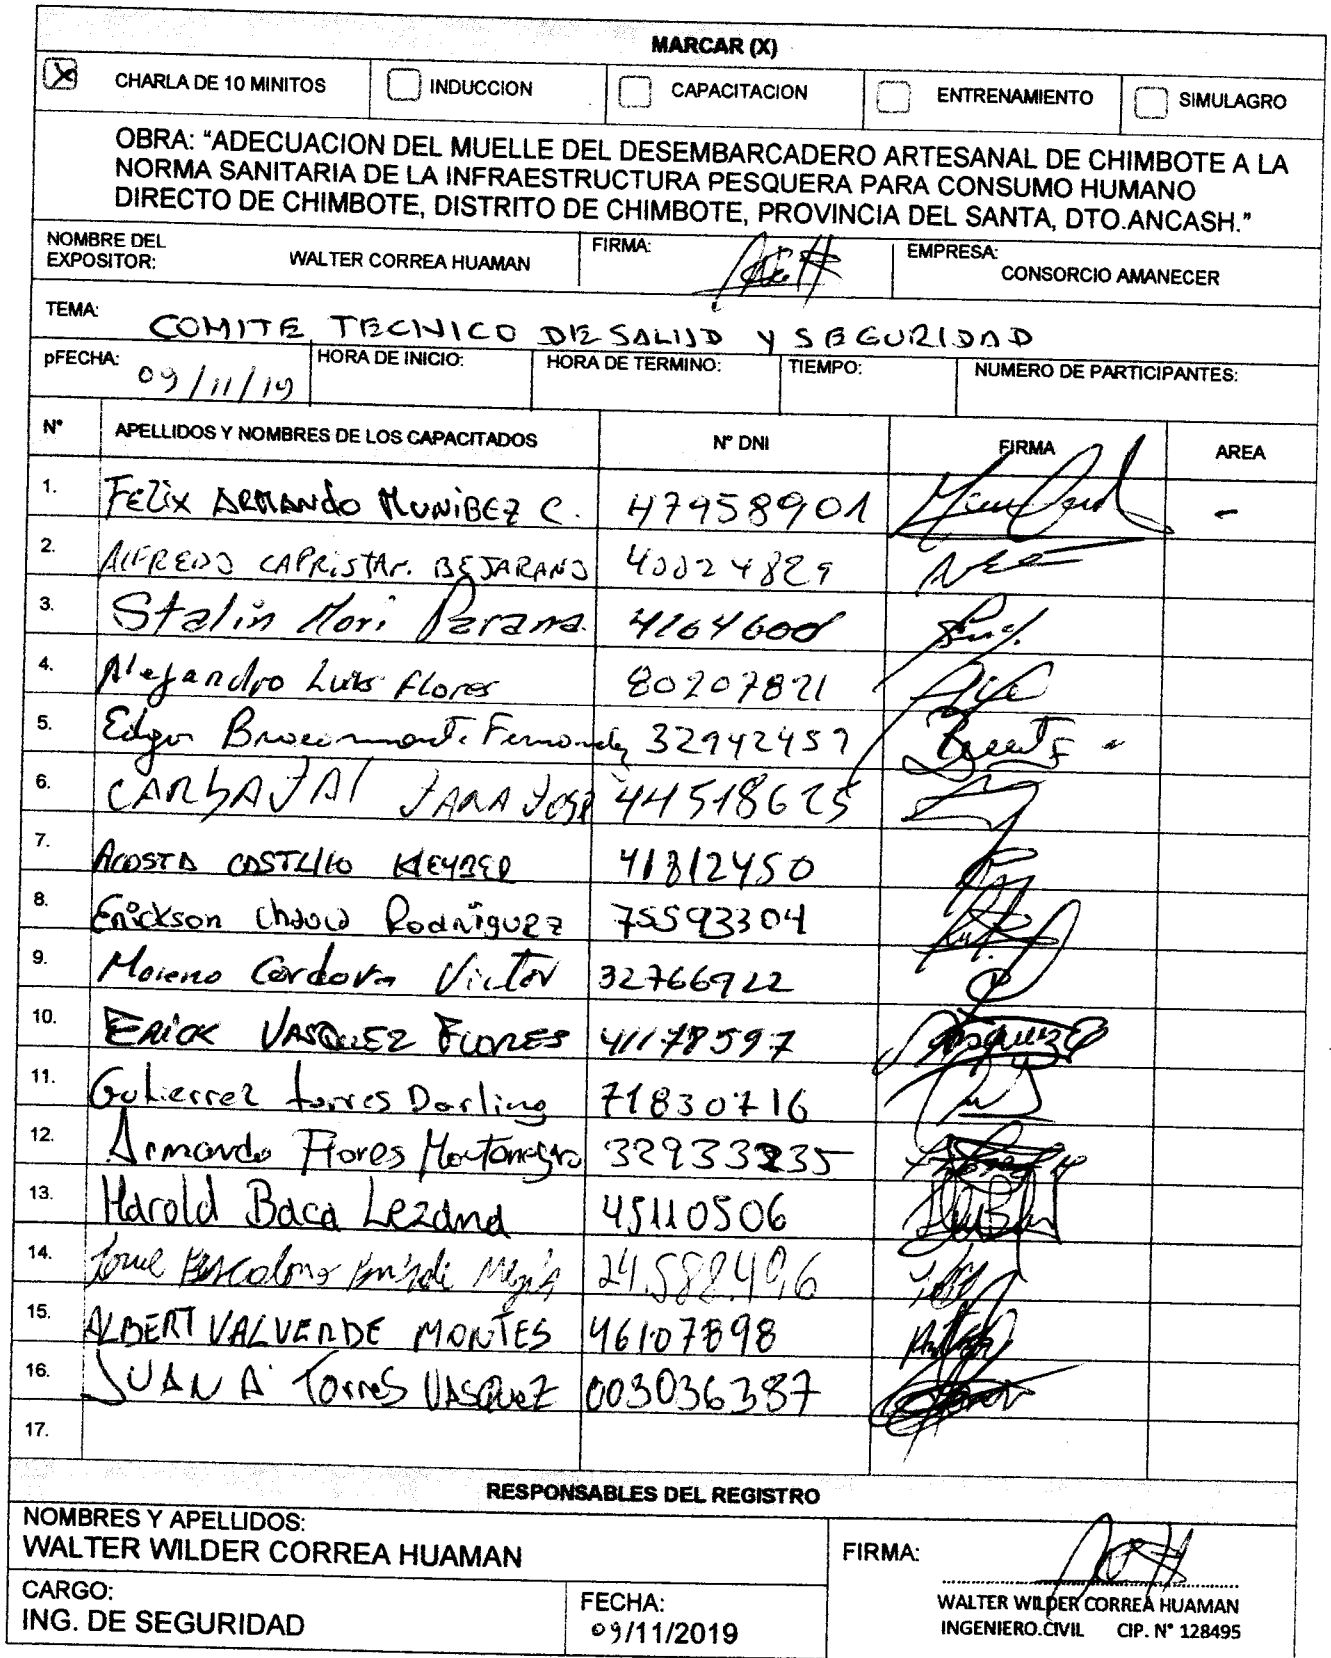 MARCAR (X)
CHARLA DE 10 MINITOS INDUCCION CAPACITACION ENTRENAMIENTO SIMULAGRO
OBRA: "ADECUACION DEL MUELLE DEL DESEMBARCADERO ARTESANAL DE CHIMBOTE A LA
NORMA SANITARIA DE LA INFRAESTRUCTURA PESQUERA PARA CONSUMO HUMANO
DIRECTO DE CHIMBOTE, DISTRITO DE CHIMBOTE, PROVINCIA DEL SANTA, DTO.ANCASH."
NOMBRE DEL
EXPOSITOR: WALTER CORREA HUAMAN FIRMA: EMPRESA:
CONSORCIO AMANECER
TEMA: COMITE TECNICO DE SALUD Y SEGURIDAD
pFECHA: 09/11/19 HORA DE INICIO: HORA DE TERMINO: TIEMPO: NUMERO DE PARTICIPANTES:
N° APELLIDOS Y NOMBRES DE LOS CAPACITADOS N° DNI FIRMA AREA
1. FELIX ARMANDO MUNIBEZ C. 47958901 -
2. ALFREDO CAPRISTAN. BEJARANO 40024829
3. Stalin Mori 4164600
4. Alejandro Luis Flores 80207821
5. Edgar 32942459
6. CARBAJAL JARA JOSE 44518625
7. ACOSTA CASTILLO KLEYBER 41812450
8. Erickson Rodriguez 75593304
9. Moreno Cordova Victor 32766922
10. ERICK VASQUEZ FLORES 41178597
11. Gutierrez torres Darling 71830716
12. Armando Flores Montonegro 32933235
13. Harold Baca Lezama 45110506
14. 24.588.496
15. ALBERT VALVERDE MONTES 46107898
16. JUAN A Torres VASQUEZ 0030036387
17.
RESPONSABLES DEL REGISTRO
NOMBRES Y APELLIDOS:
WALTER WILDER CORREA HUAMAN FIRMA:
CARGO:
ING. DE SEGURIDAD
FECHA:
09/11/2019
WALTER WILDER CORREA HUAMAN
INGENIERO.CIVIL CIP. N° 128495